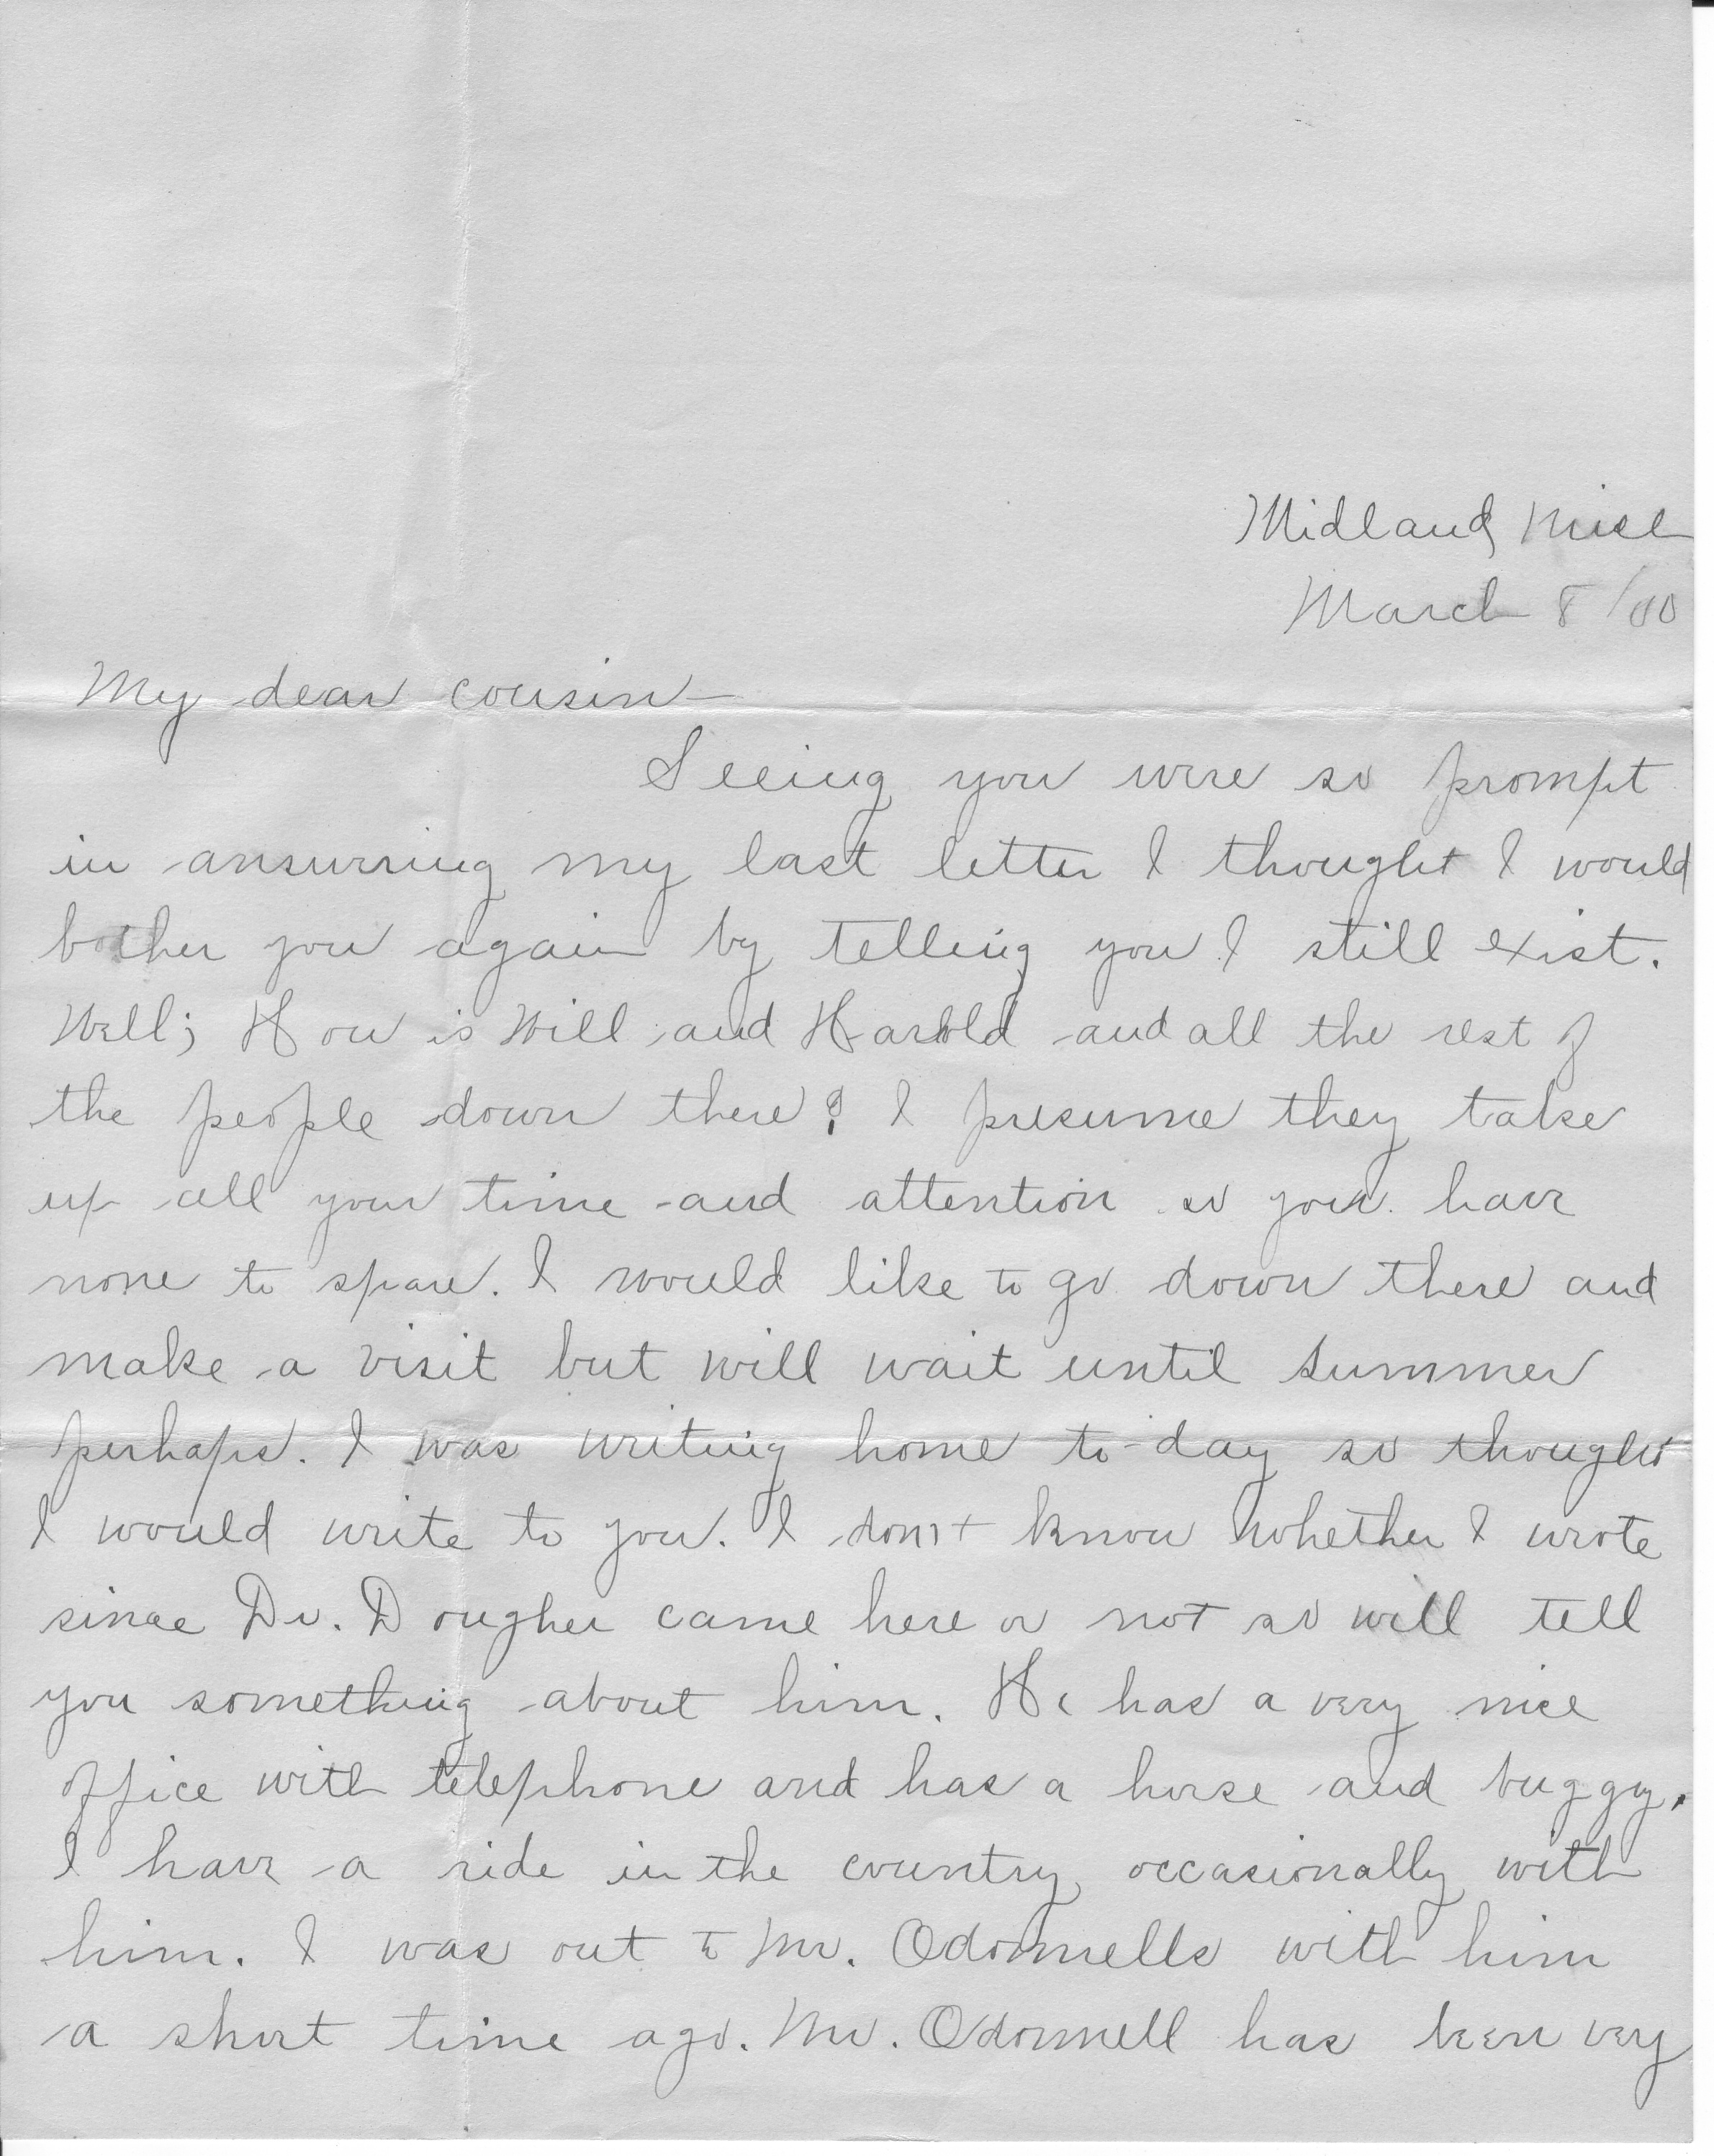 Midland, Mich
March 8/00
My dear cousin—
Seeing you were so prompt
in answering my last letter I thought I would
bother you again by telling you I still exist.
Well; How is Will and Harold and all the rest of
the people down there? I presume they take
up all your time and attention so you have
none to spare. I would like to go down there and
make a visit but will wait until summer
perhaps. I was writing home to-day so thought
I would write to you. I don't know whether I wrote
since Dr. Dougher came here or not so will tell
you something about him. He has a very nice
office with telephone and has a horse and buggy.
I have a ride in the country occasionally with
him. I was out to Mr. Odonnells with him
a short time ago. Mr. Odonnell has been very